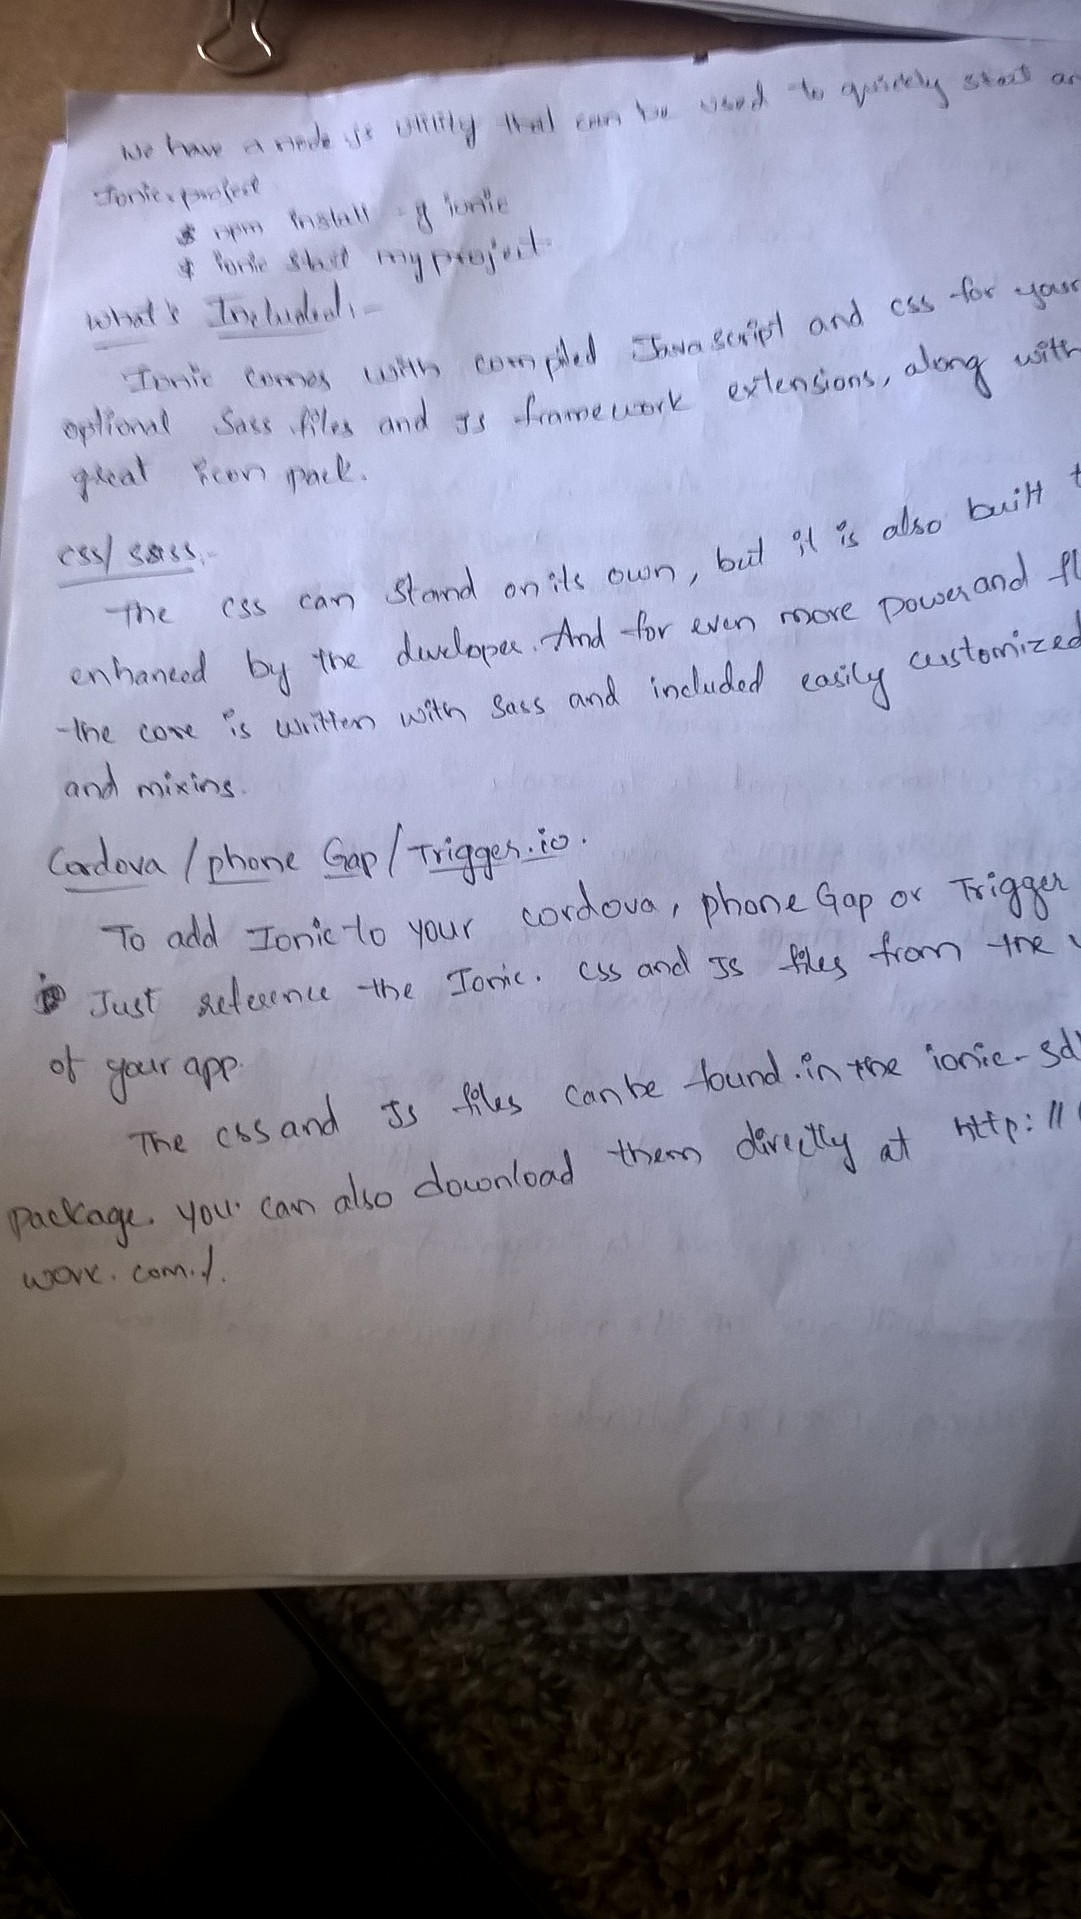 We have a node js utility that can be used to quickly start an
Ionic project
$ npm install -g ionic
$ ionic start myproject
What's Included:-
Ionic comes with compiled Javascript and css for your
optional Sass files and Js framework extensions, along with
great icon pack.
css/sass:-
The css can stand on its own, but it is also built t
enhanced by the developer. And for even more power and fl
the core is written with Sass and included easily customized
and mixins.
Cordova / phone Gap / Trigger.io.
To add Ionic to your cordova, phone Gap or Trigger
Just reference the Ionic. css and Js files from the
of your app.
The css and Js files can be found in the ionic-sd
package. you can also download them directly at http://
work.com./.